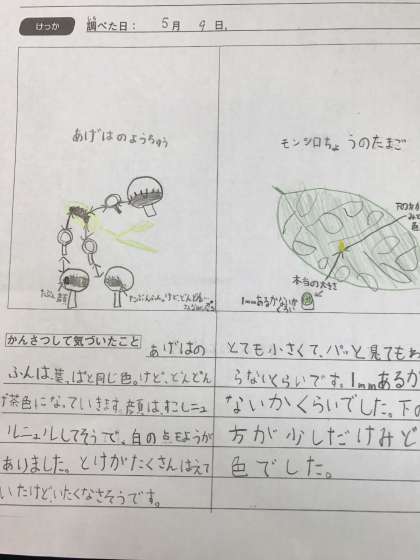 けっか
調べた日： 5月 9日、
あげはのようちゅう
たぶん
モンシロちょうのたまご
本当の大きさ
1mmあるかないか
ぐらい
かんさつして気づいたこと
あげはの
ふんは、葉っぱと同じ色。けど、どんどん
茶色になっていきます。顔は、すこしニュ
ルニュルしてそうで、白の点もようが
ありました。とげがたくさんはえて
いたけど、いたくなさそうです。
とても小さくて、パッと見てもわ
らないくらいです。1mmあるか
ないかくらいでした。下の
方が少しだけみど
色でした。